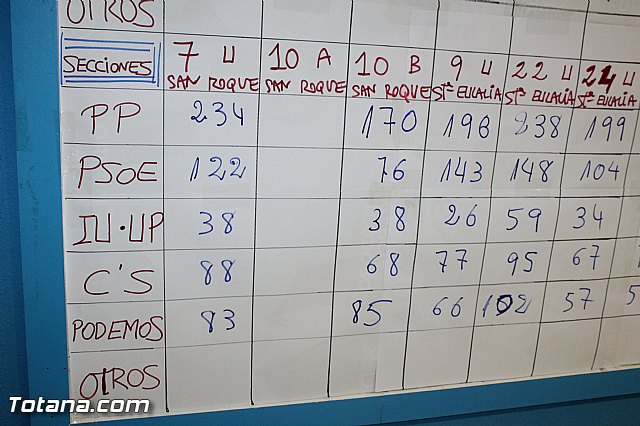 OTROS
SECCIONES 7 U 10 A 10 B 9 U 22 U 24 U
SAN ROQUE SAN ROQUE SAN ROQUE Stª EULALIA Stª EULALIA Stª EULALIA
PP 234 170 198 238 199
PSOE 122 76 143 148 104
IU·UP 38 38 26 59 34
C'S 88 68 77 95 67
PODEMOS 83 85 66 102 57 5
OTROS
Totana.com